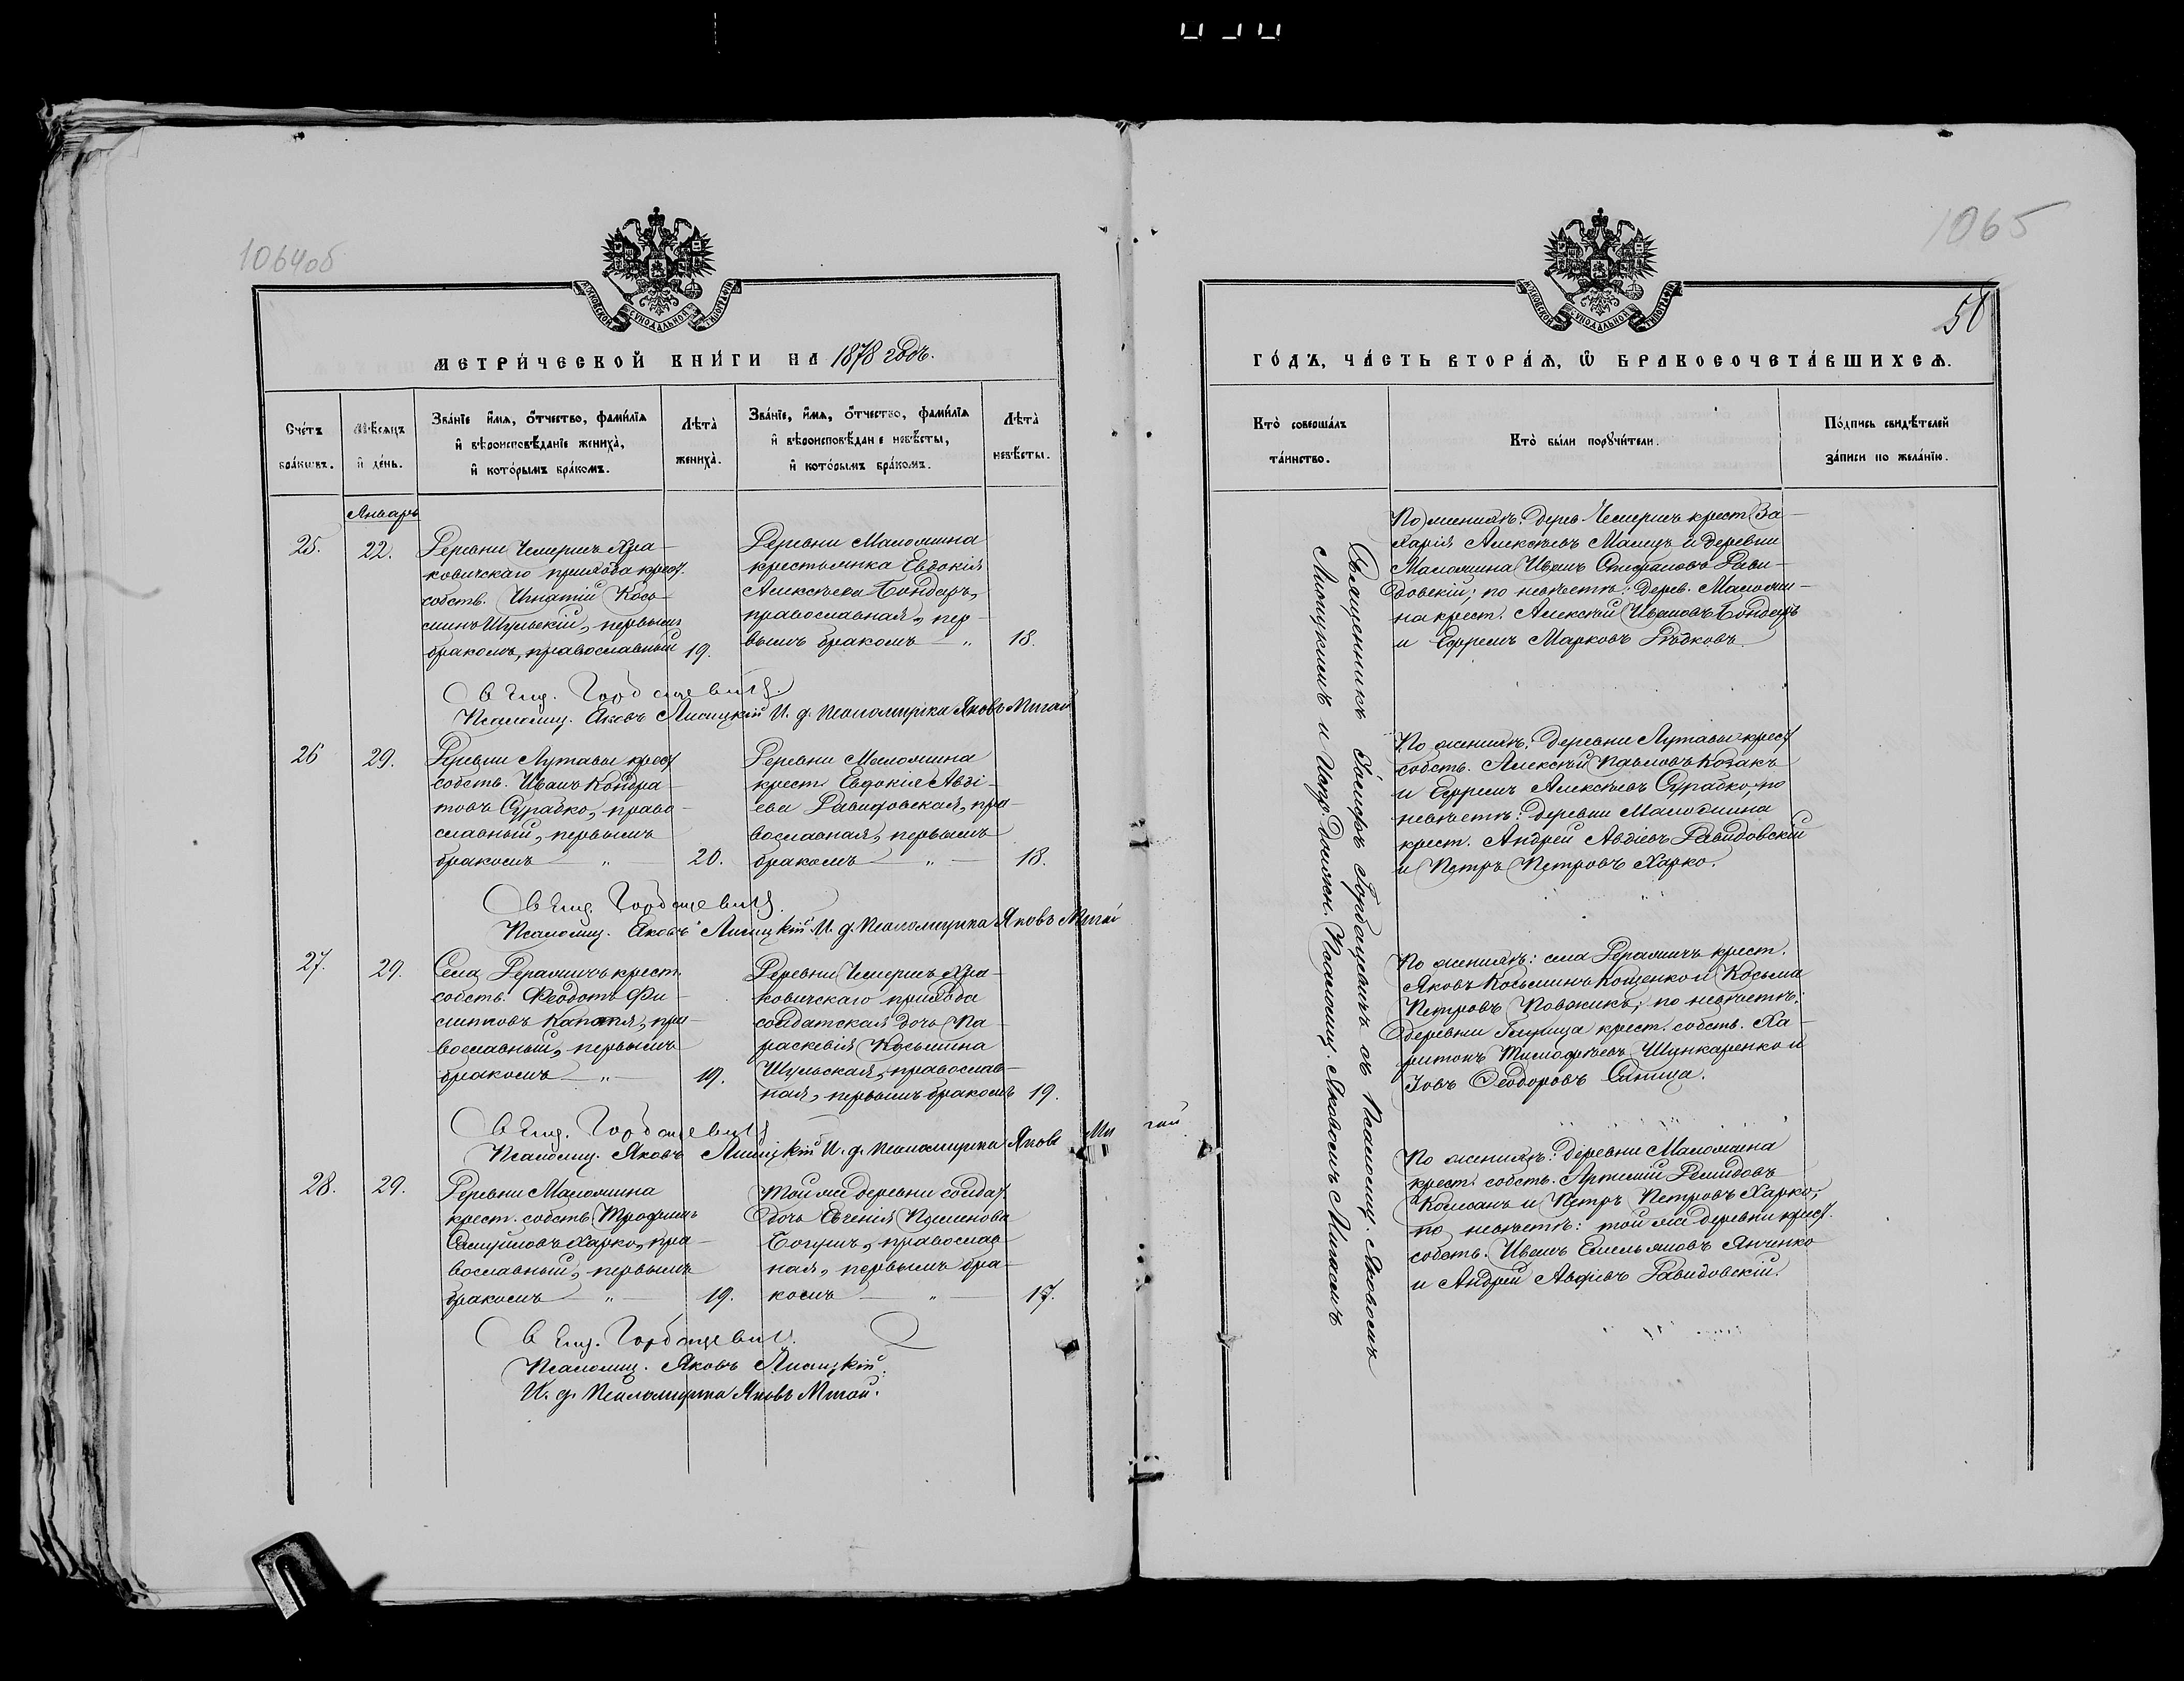 1064об
МЕТРИ́ЧЕСКОЙ КНИ́ГИ НА 1878 годъ.
Сче́тъ бра́ковъ.
Мѣ́сяцъ и де́нь.
Зва́нїе, и́мѧ, ѻ҆́тчество, фамѝлїѧ и҆ вѣроисповѣ́данїе жениха̀, и҆ кото́рымъ бра́комъ.
Лѣ̑та̀ жениха̀.
Зва́нїе, и́мѧ, ѻ҆́тчество, фамѝлїѧ и҆ вѣроисповѣ́данїе невѣ́сты, и҆ кото́рымъ бра́комъ.
Лѣ̑та̀ невѣ́сты.
Январь
25.
22.
Деревни Чемеришъ Хра-
ковичскаго прихода крест.
собств. Игнатій Кось-
минъ Шульскій, первымъ
бракомъ, православный
19.
Деревни Маложина
крестьянка Евдокія
Алексѣева Бондарь,
православная, пер-
вымъ бракомъ — "
18.
Свящ. Горбацевичъ.
Псаломщ. Яковъ Лисицкій И. д. Псаломщика Яковъ Мигай
26
29.
Деревни Лутавы крест
собств. Иванъ Кондра-
товъ Сурабко, право-
славный, первымъ
бракомъ — " —
20.
Деревни Маложина
крест. Евдокія Авді-
ева Давидовская, пра-
вославная, первымъ
бракомъ — " —
18.
Свящ. Горбацевичъ.
Псаломщ. Яковъ Лисицкій И. д. Псаломщика Яковъ Мигай
27.
29.
Села Деражичъ крест.
собств. Феодотъ Фи-
липповъ Капотя, пра-
вославный, первымъ
бракомъ — " —
19.
Деревни Чемеришъ Хра-
ковичскаго прихода
солдатская дочь Па-
раскевія Косьмина
Шульская, православ-
ная, первымъ бракомъ
19.
Свящ. Горбацевичъ
Псаломщ. Яковъ Лисицкій И. д. Псаломщика Яковъ Мигай
28.
29.
Деревни Маложина
крест. собств. Трофимъ
Самуиловъ Харко, пра-
вославный, первымъ
бракомъ — " —
19.
Той же деревни солдат.
дочь Евгенія Пименова
Богушъ, православ-
ная, первымъ бра-
комъ — " —
17.
Свящ. Горбацевичъ.
Псаломщ. Яковъ Лисицкій.
И. д. Псаломщика Яковъ Мигай.
1065
58
ГО́ДЪ, ЧА́СТЬ ВТОРА́Ѧ, Ѽ БРАКОСОЧЕТА́ВШИХСѦ.
Кто̀ соверша́лъ та́инство.
Кто̀ бы́ли порꙋчи́тели.
По́дпись свидѣ́телей за́писи по жела́нїю.
Священникъ Іосифъ Горбацевичъ съ Псаломщ. Яковомъ
Лисицкимъ и Испр. должн. Псаломщ. Яковомъ Мигаемъ
По женихѣ: дерев Чемеришъ крест. За-
харія Алексѣевъ Малецъ и деревни
Маложина Иванъ Стефановъ Дави-
довскій; по невѣстѣ: дерев. Маложи-
на крест. Алексѣй Ивановъ Бондарь
и Ефремъ Марковъ Рѣдковъ.
По женихѣ: деревни Лутавы крест
собств. Алексѣй Павловъ Козакъ
и Ефремъ Алексѣевъ Сурабко, по
невѣстѣ: деревни Маложина
крест. Андрей Авдіевъ Давидовскій
и Петръ Петровъ Харко.
По женихѣ: села Деражичъ крест.
Яковъ Косьминъ Кощенко и Косьма
Петровъ Повжикъ; по невѣстѣ:
деревни крест. собств. Ха-
ритонъ Тимофѣевъ Шинкаренко и
Іовъ Ѳеодоровъ Синица.
По женихѣ: деревни Маложина
крест. собств. Артемій Демидовъ
Колбанъ и Петръ Петровъ Харко;
по невѣстѣ: той же деревни крест.
собств. Иванъ Емельяновъ Янченко
и Андрей Авдіевъ Давидовскій.